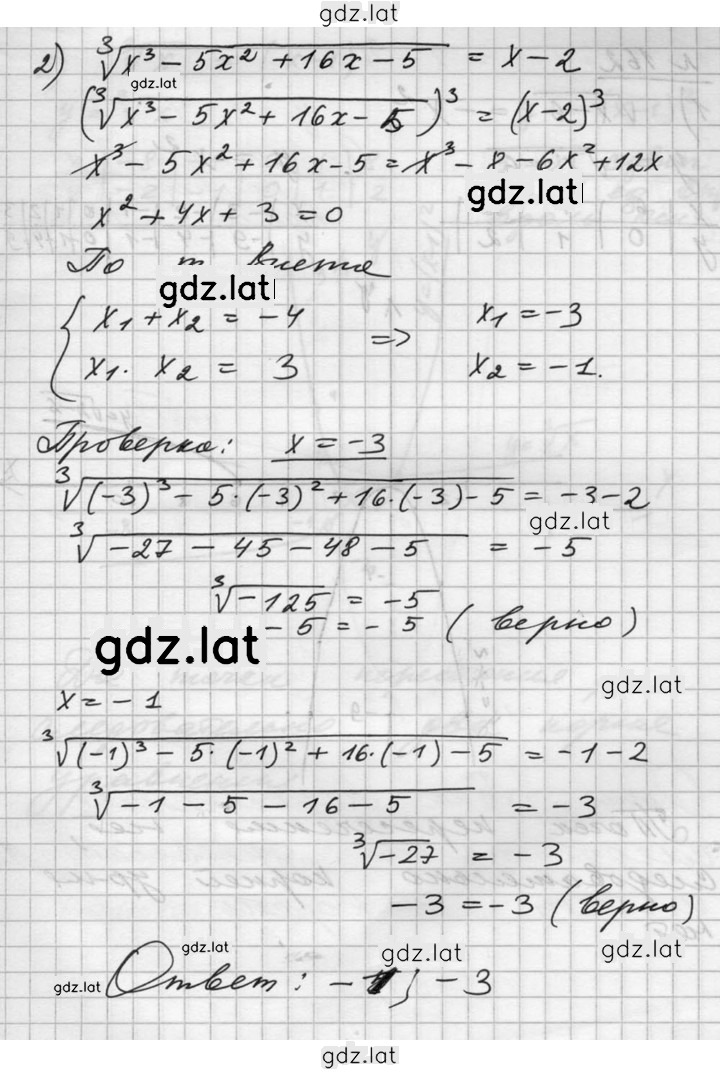 gdz.lat
2) ∛(x³ − 5x² + 16x − 5) = x − 2
gdz.lat
(∛(x³ − 5x² + 16x − 5))³ = (x−2)³
x³ − 5x² + 16x − 5 = x³ − 8 − 6x² + 12x
gdz.lat
x² + 4x + 3 = 0
По т Виета
gdz.lat
{ x₁ + x₂ = −4 => x₁ = −3
x₁ · x₂ = 3 x₂ = −1.
Проверка: x = −3
∛((−3)³ − 5·(−3)² + 16·(−3) − 5) = −3−2
gdz.lat
∛(−27 − 45 − 48 − 5) = −5
∛(−125) = −5
−5 = −5 (верно)
gdz.lat
gdz.lat
x = −1
∛((−1)³ − 5·(−1)² + 16·(−1) − 5) = −1−2
∛(−1 − 5 − 16 − 5) = −3
∛(−27) = −3
−3 = −3 (верно)
gdz.lat
gdz.lat
gdz.lat
gdz.lat
Ответ: −1; −3
gdz.lat